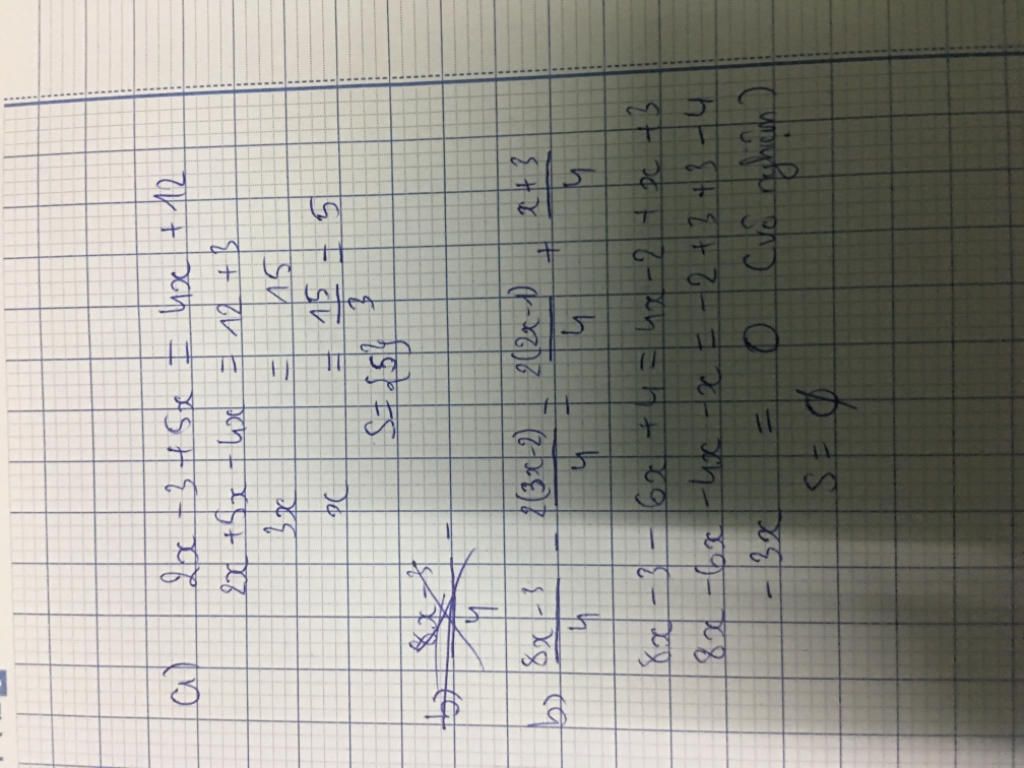 a) 2x - 3 + 5x = 4x + 12
2x + 5x - 4x = 12 + 3
3x = 15
x = 15/3 = 5
S = {5}
b) 8x - 3/4 -
b) 8x - 3/4 - 2(3x-2)/4 = 2(2x-1)/4 + x+3/4
8x - 3 - 6x + 4 = 4x - 2 + x + 3
8x - 6x - 4x - x = -2 + 3 + 3 - 4
- 3x = 0 (vô nghiệm)
S = ∅